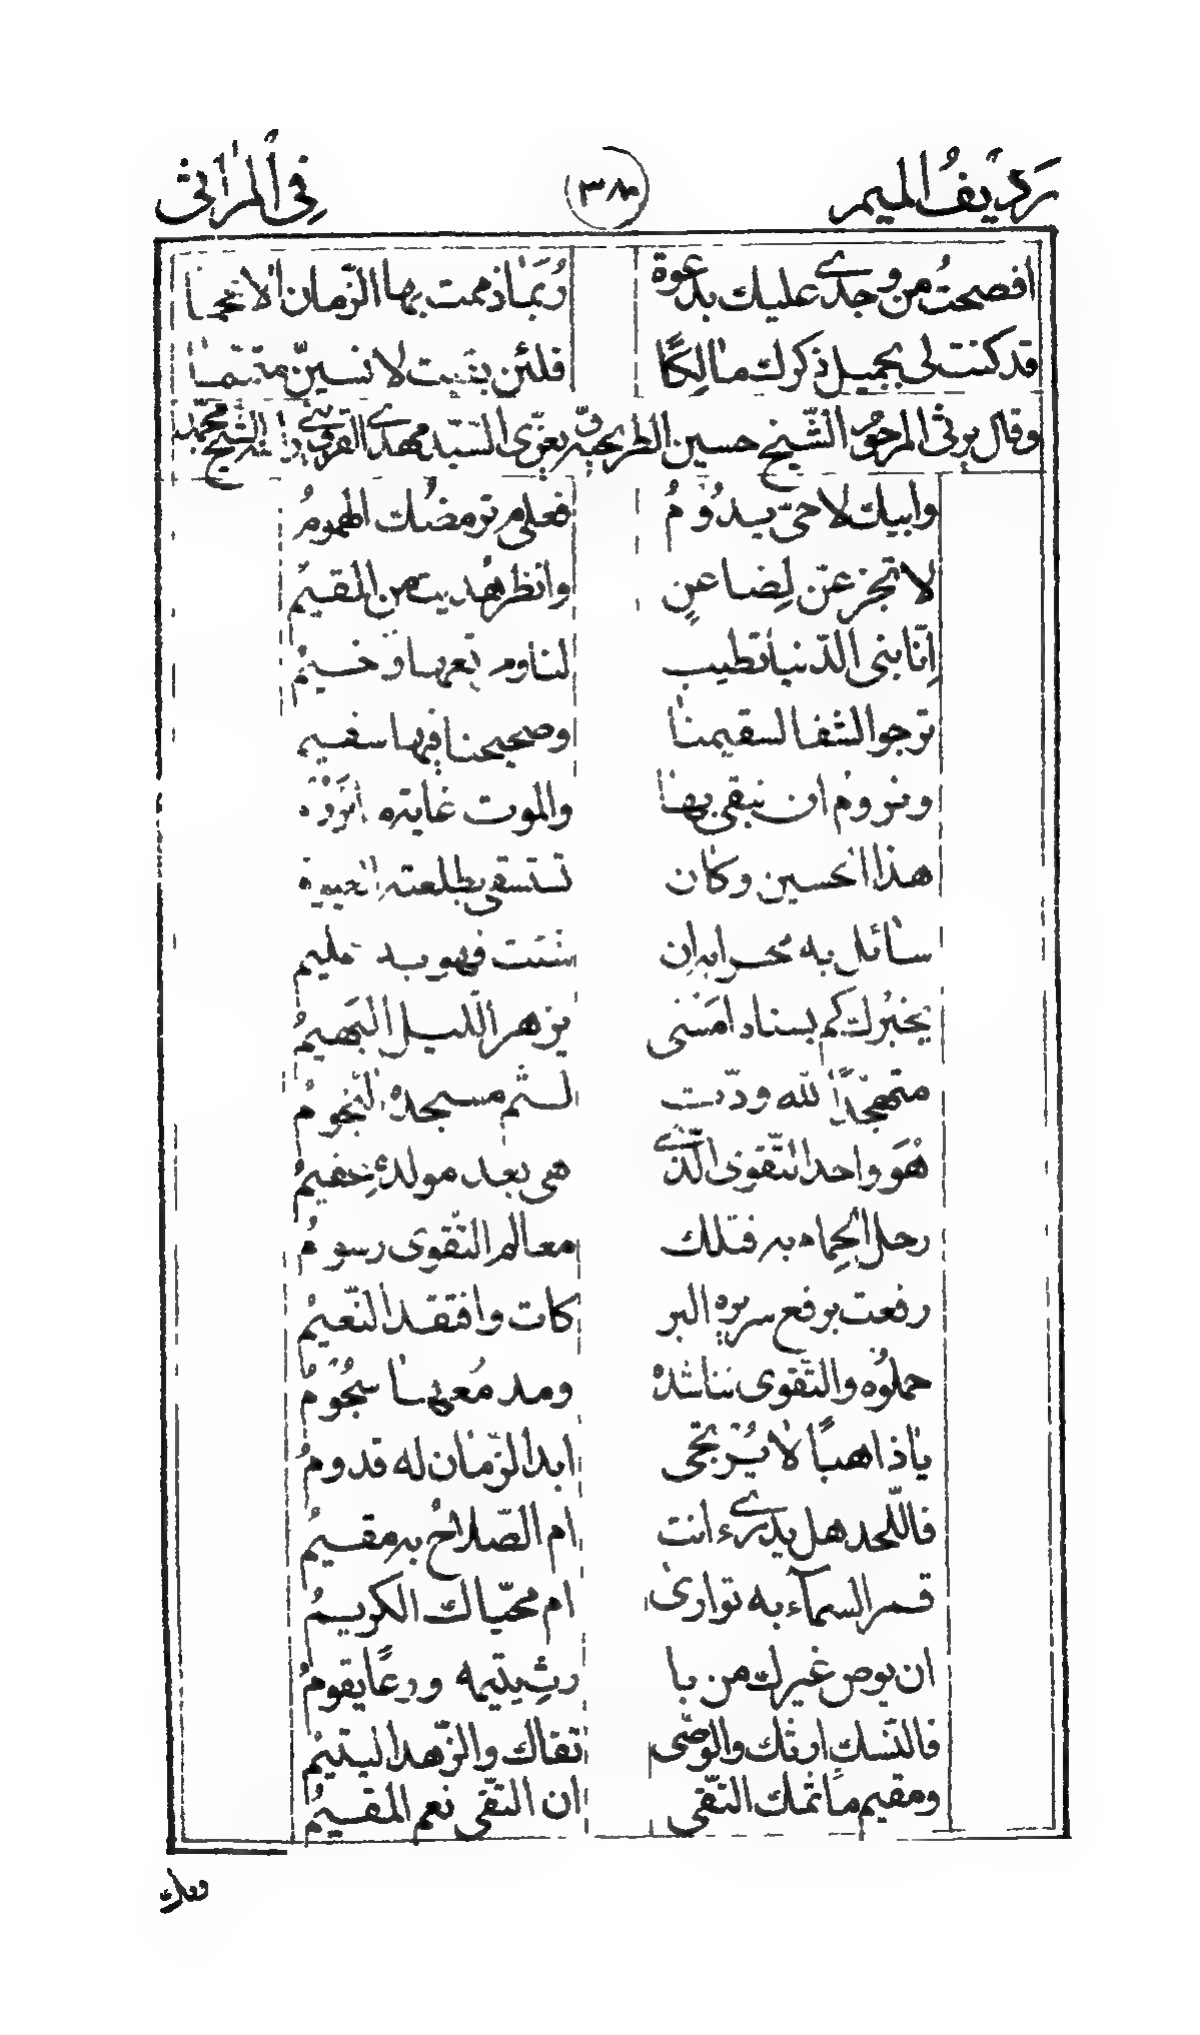 رديفُ الميم ٣٨٠ في المراثي
افصحتُ من وجدي عليك بدعوة ربما ذممت بها الزّمان الاعجما
قد كنت لي بجميل ذكرك مالكًا فلئن بقيت لانسينّ متمّما
وقال يرثي المرحوم الشّيخ حسين الطريحي ويعزّى السّيّد مهدي القزويني الشّيخ محمّد
وابيك لا حيّ يدُومُ فعلى م ترمضُك الهمومُ
لا تجزعنّ لظاعنٍ وانظر هُديت من المقيمُ
اِنّا بني الدّنيا تطيب لنا ومرتعها وخيمُ
نرجو الشفا لسقيمنا وصحيحنا فيها سقيم
ونروم ان نبقى بها والموت غايته
هذا الحسين وكان تستسقى بطلعته الغيوم
سائل به محرابه ان شئت فهو به عليم
يخبرك كم بسناه امسَى يزهر اللّيل البَهيمُ
متهجّدًا لله ودّت لثم مسجده النّجومُ
هُوَ واحد التّقوى الّذي هي بعد مولده عقيمُ
رحل الحِمام به فتلك معالم التّقوى رسومُ
رفعت برفع سريره البر كات وافتقد النّعيمُ
حملوُه والتّقوى تناشدهُ ومدمعُها سجُومُ
يا ذاهبًا لا يُرتجى ابد الزّمان له قدومُ
فاللّحد هل يدري ءانت ام الصّلاحُ به مقيمُ
قمر السمآء به توارى ام محيّاك الكريمُ
ان يوص غيرك من با رثِ يتيمه ورعًا يقومُ
فالنّسك ارثك والوصّى تقاك والزّهد اليتيمُ
ومقيم ماتمك التّقى ان التّقى نعم المقيمُ